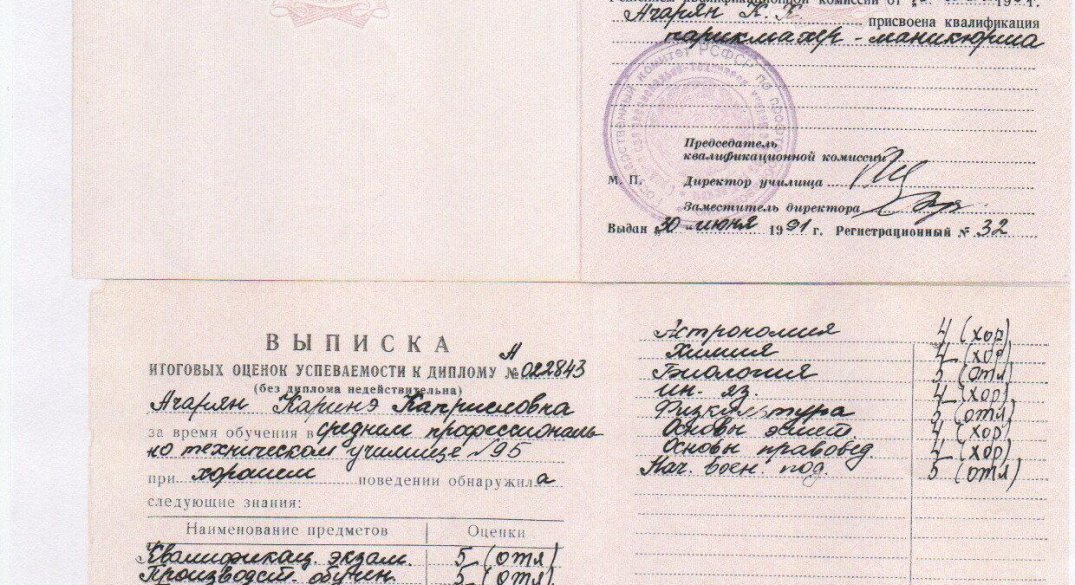 Решением квалификационной комиссии от
Ачарян К. К. присвоена квалификация
парикмахер - маникюрша
Председатель
квалификационной комиссии
М. П. Директор училища
Заместитель директора
Выдан „30 " июня 1991 г. Регистрационный № 32
ВЫПИСКА
ИТОГОВЫХ ОЦЕНОК УСПЕВАЕМОСТИ К ДИПЛОМУ № А 022843
(без диплома недействительна)
Ачарян Каринэ Каприеловна
за время обучения в среднем профессиональ
но техническом училище №95
при хорошем поведении обнаружила
следующие знания:
Наименование предметов Оценки
Квалификац. экзам. 5 (отл)
Производст. обучен. 5 (отл)
Астрономия 4 (хор)
Химия 4 (хор)
Биология 5 (отл)
ин. яз. 4 (хор)
Физкультура 5 (отл)
Основы эстет. 4 (хор)
Основы правовед. 4 (хор)
Нач. воен. под. 5 (отл)